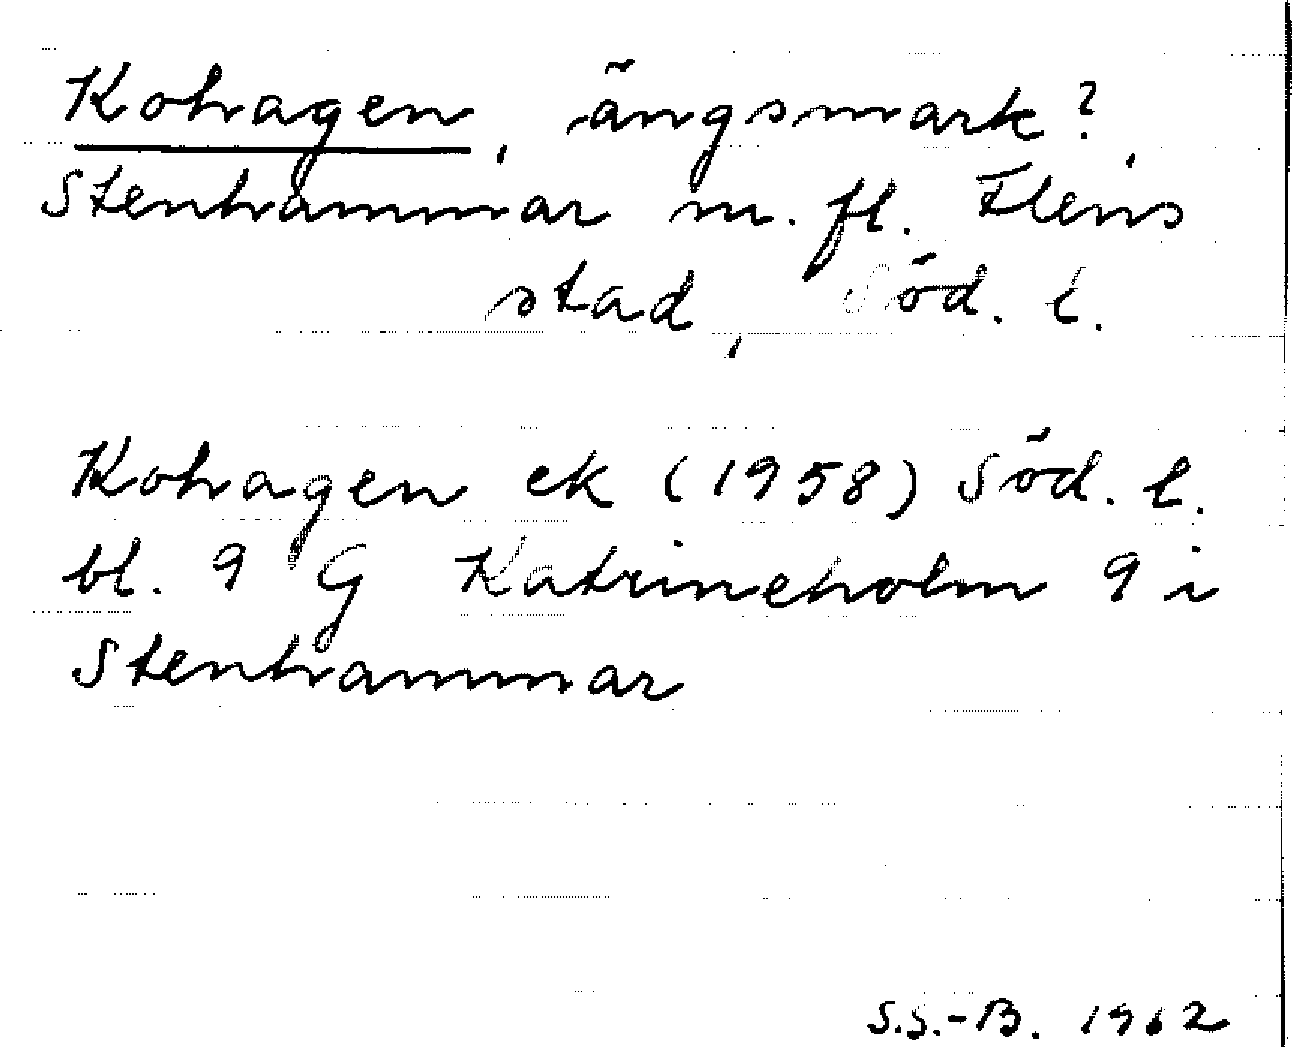 Kohagen, ängsmark?,
Stenhammar m. fl. Flens
stad, Söd. l.
Kohagen ek (1958) Söd. l.
bl. 9 G Katrineholm 9 i
Stenhammar
S.S.-B. 1962